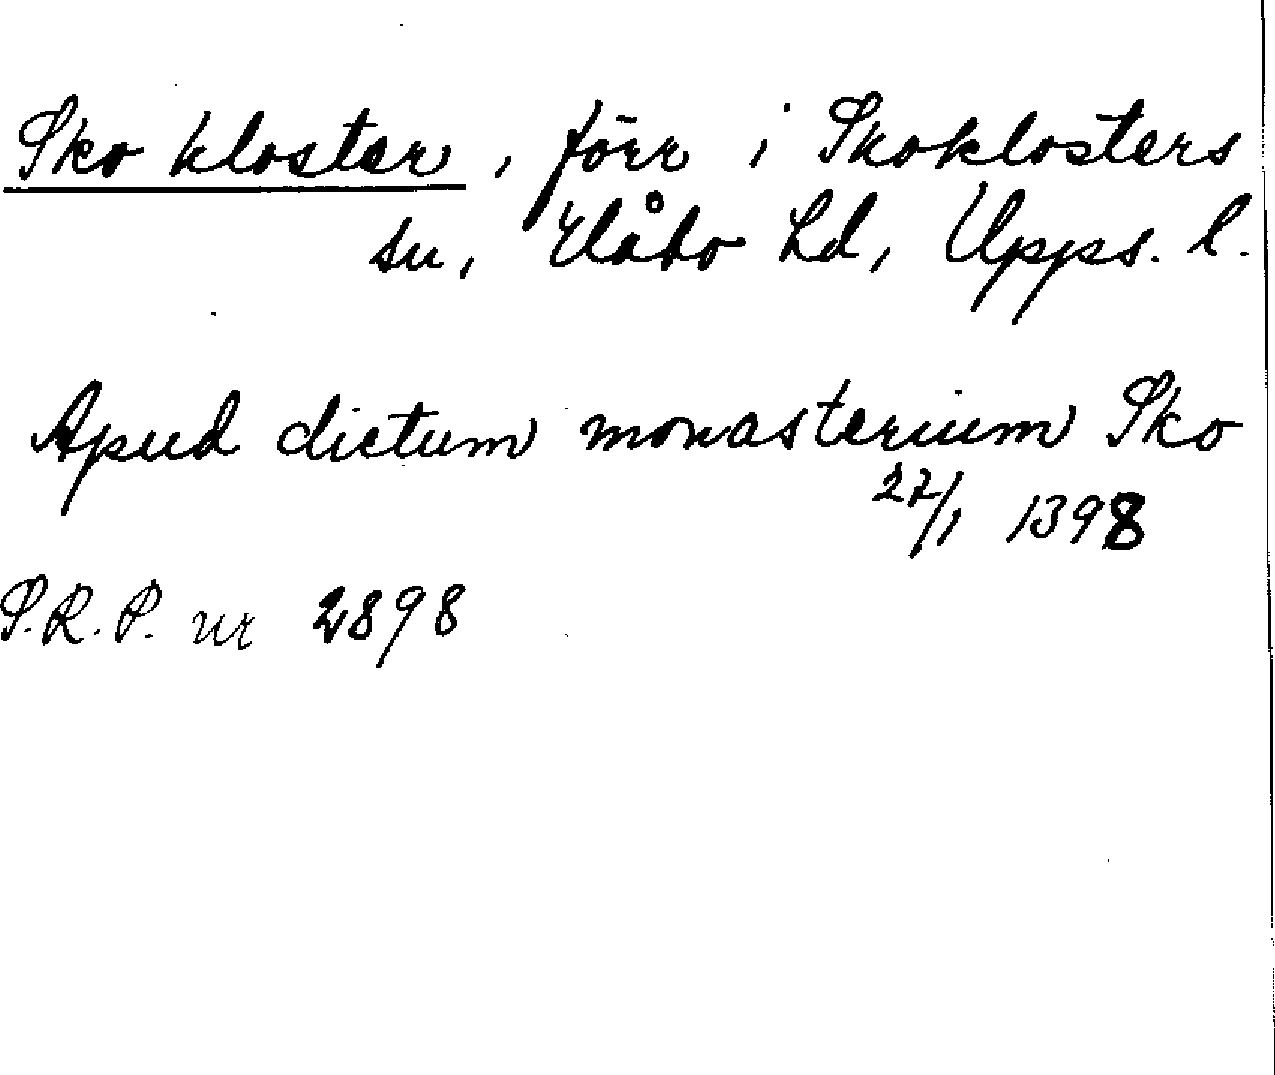 Sko kloster, förr i Skoklosters
sn, Håbo hd, Upps. l.
Apud dictum monasterium Sko
27/1 1398
S.R.P. nr 2898